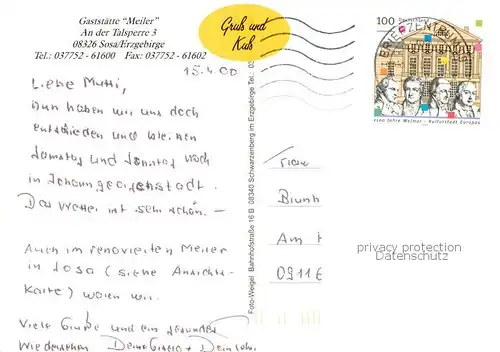 Gaststätte "Meiler"
An der Talsperre 3
08326 Sosa/Erzgebirge
Tel.: 037752 - 61600 Fax: 037752 - 61602
Gruß und
Kuß
15.4.00
Liebe Mutti,
nun haben wir uns doch
entschieden und bleiben
Samstag und Sonntag noch
in Johanngeorgenstadt.
Das Wetter ist sehr schön. -
Auch im renovierten Meiler
in Sosa (siehe Ansichts-
karte) waren wir.
Viele Grüße und ein gesundes
Wiedersehen
Foto-Weigel Bahnhofstraße 16 B 08340 Schwarzenberg im Erzgebirge Tel.: 03
100 Deutschland
BRIEFZENTRUM
1100 Jahre Weimar - Kulturstadt Europas
Frau
Am
privacy protection
Datenschutz